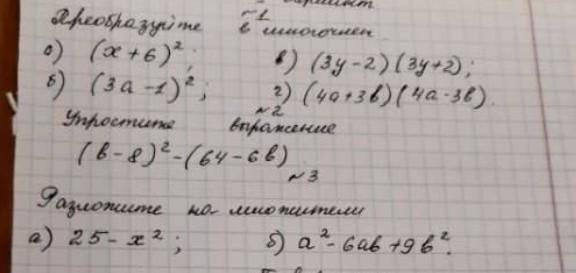 вариант
№1
Преобразуйте в многочлен
а) (x+6)²; в) (3y-2)(3y+2);
б) (3a-1)²; г) (4a+3b)(4a-3b).
№2
Упростите выражение
(b-8)²-(64-6b)
№3
Разложите на множители
а) 25-x²; б) a²-6ab+9b².